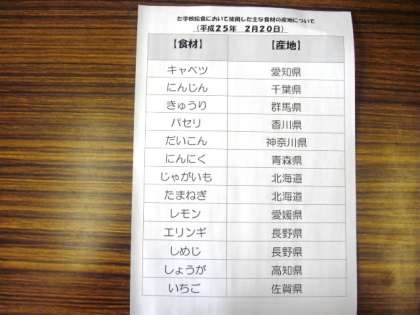 な学校給食において使用した主な食材の産地について
（平成２５年　２月２０日）
【食材】　【産地】
キャベツ　愛知県
にんじん　千葉県
きゅうり　群馬県
パセリ　香川県
だいこん　神奈川県
にんにく　青森県
じゃがいも　北海道
たまねぎ　北海道
レモン　愛媛県
エリンギ　長野県
しめじ　長野県
しょうが　高知県
いちご　佐賀県